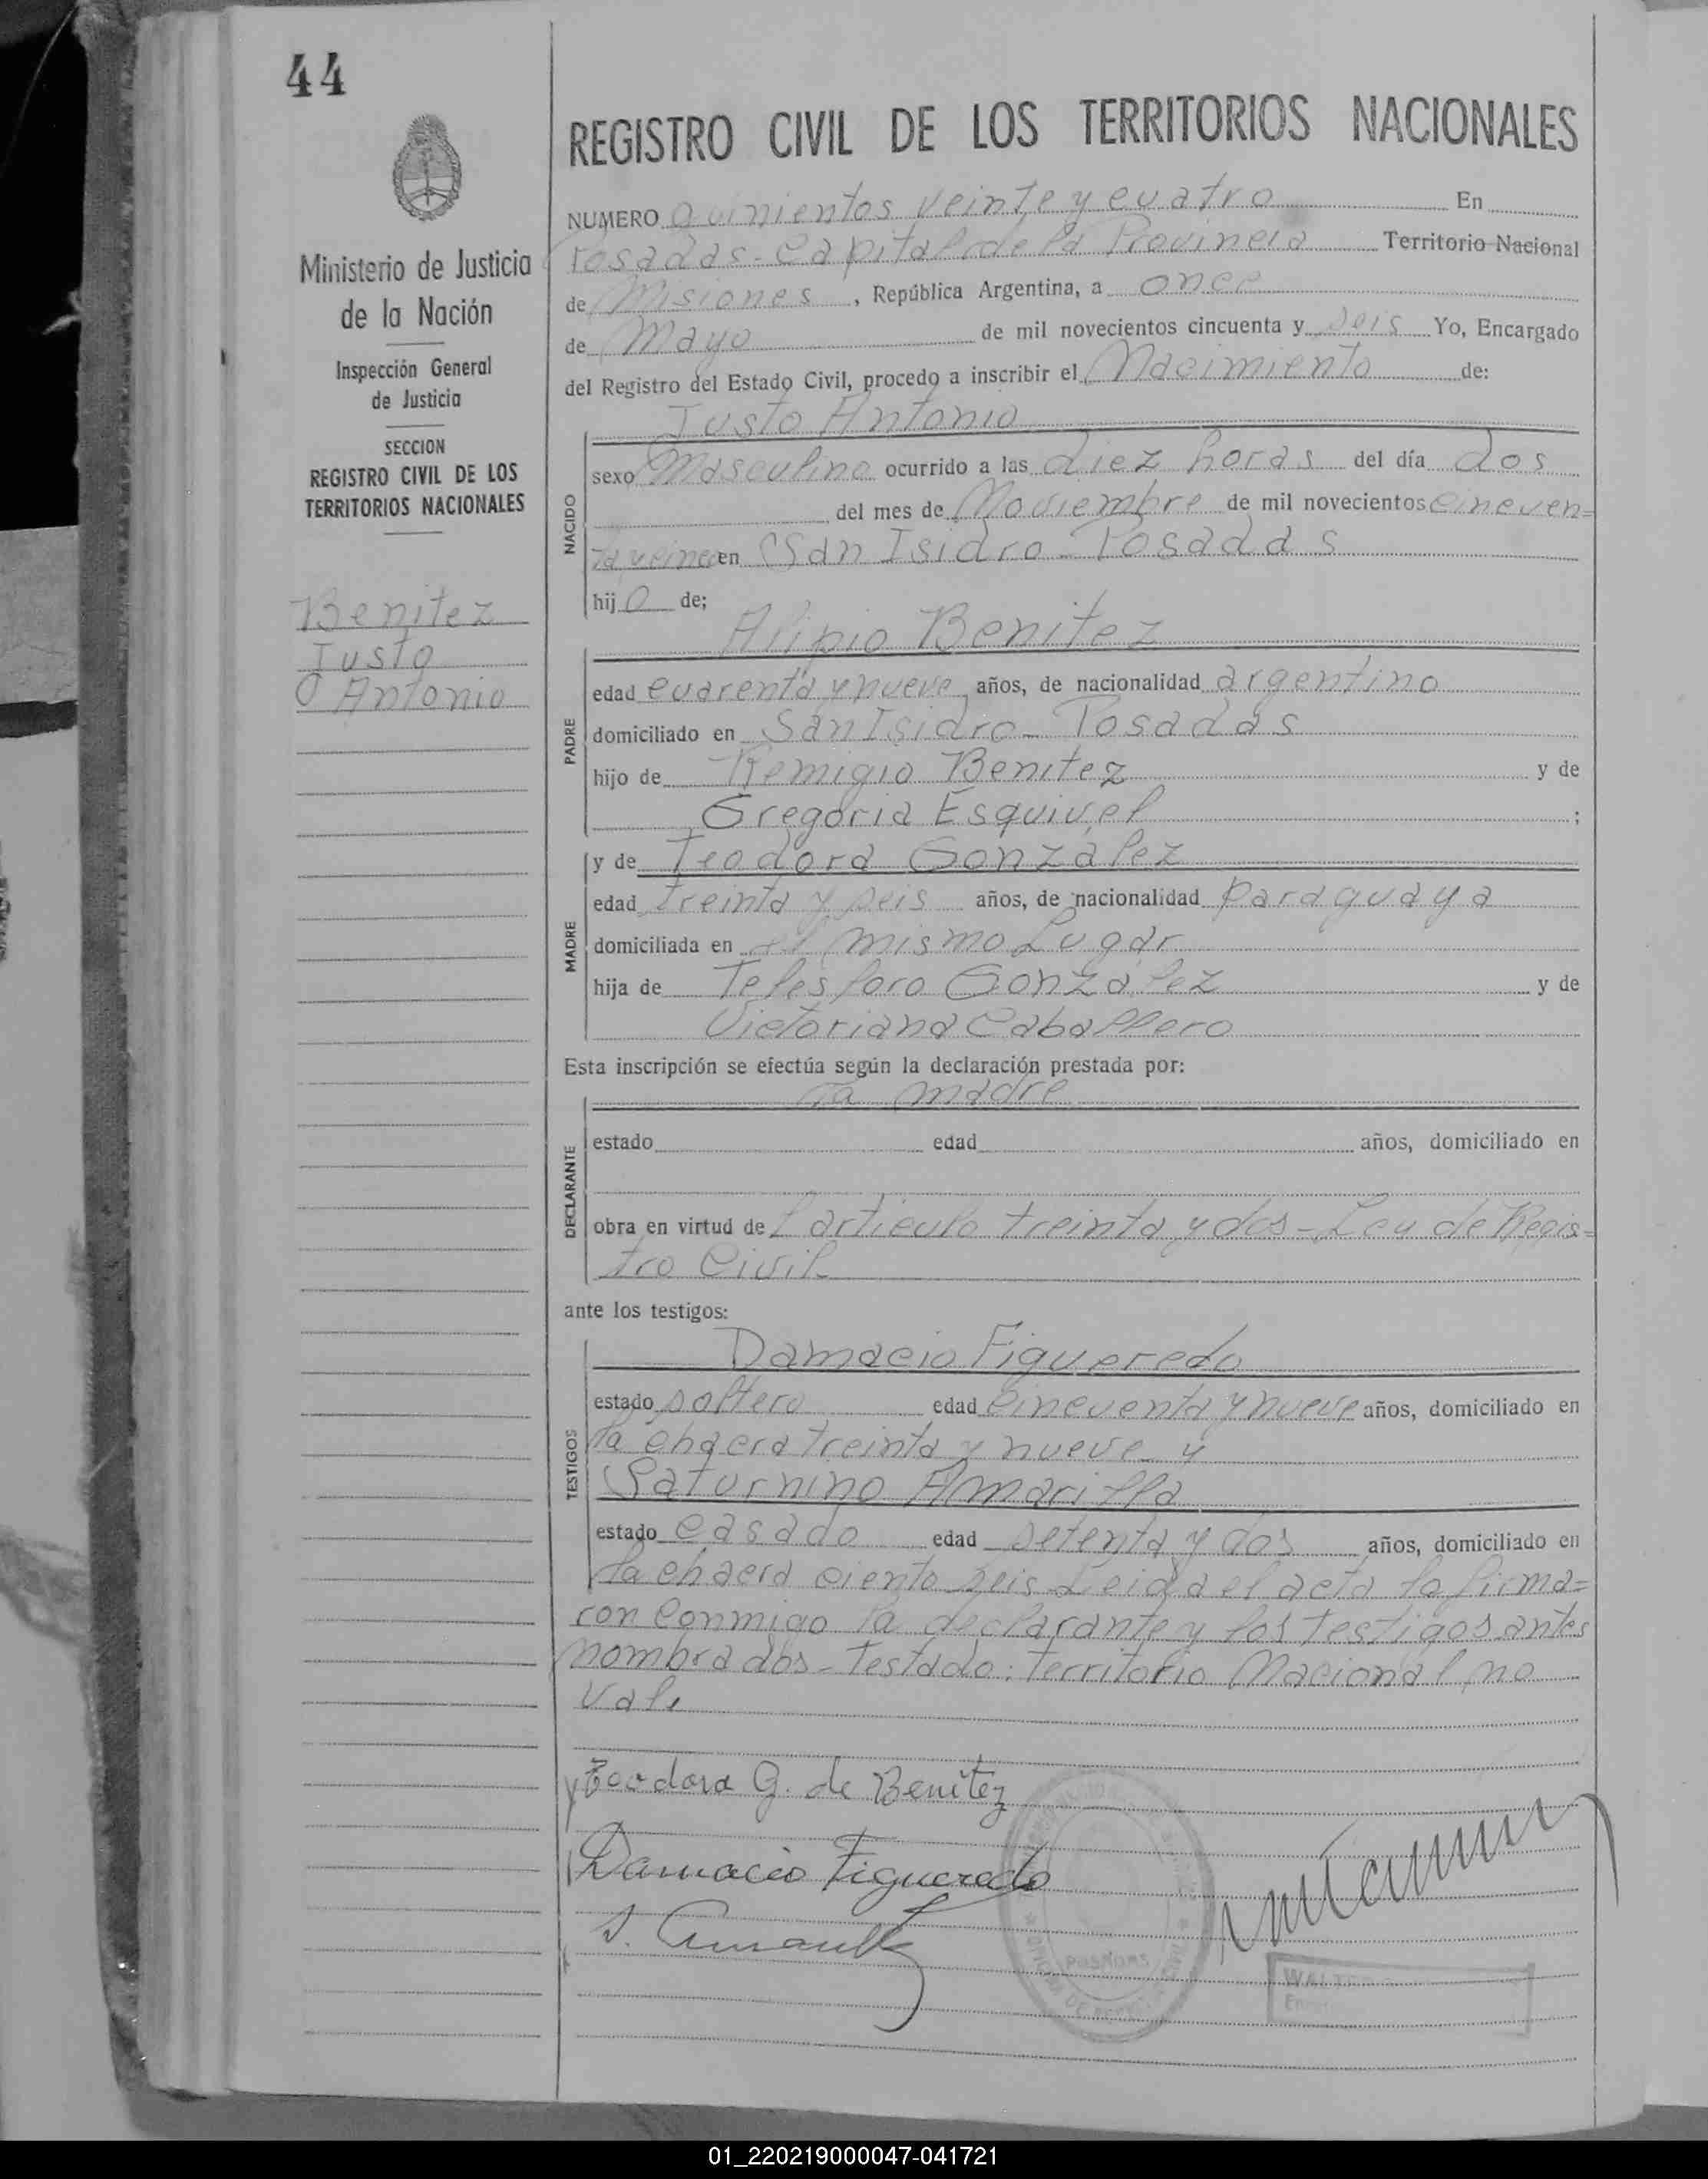 44
REGISTRO CIVIL DE LOS TERRITORIOS NACIONALES
Ministerio de Justicia
de la Nación
Inspección General
de Justicia
SECCION
REGISTRO CIVIL DE LOS
TERRITORIOS NACIONALES
Benitez
Justo
Antonio
NUMERO quinientos veinte y cuatro En
Posadas - Capital de la Provincia Territorio Nacional
de Misiones, República Argentina, a once
de Mayo de mil novecientos cincuenta y seis Yo, Encargado
del Registro del Estado Civil, procedo a inscribir el Nacimiento de:
Justo Antonio
NACIDO
sexo Masculino ocurrido a las diez horas del día dos
del mes de Noviembre de mil novecientos cincuen=
ta y cinco en San Isidro - Posadas
hijo de;
Alipio Benitez
PADRE
edad cuarenta y nueve años, de nacionalidad argentino
domiciliado en San Isidro - Posadas
hijo de Remigio Benitez y de
Gregoria Esquivel ;
MADRE
y de Teodora González
edad treinta y seis años, de nacionalidad paraguaya
domiciliada en el mismo Lugar
hija de Telesforo González y de
Victoriana Caballero
Esta inscripción se efectúa según la declaración prestada por:
la madre
DECLARANTE
estado edad años, domiciliado en
obra en virtud del articulo treinta y dos - Ley de Regis=
tro Civil
ante los testigos:
Damacio Figueredo
TESTIGOS
estado soltero edad cincuenta y nueve años, domiciliado en
la chacra treinta y nueve y
Saturnino Amarilla
estado casado edad setenta y dos años, domiciliado en
la chacra ciento seis Leida el acta la firma=
ron conmigo la declarante y los testigos antes
nombrados - Testado: Territorio Nacional no
vale
Teodora G. de Benítez
Damacio Figueredo
S. Amarilla
POSADAS
01_220219000047-041721